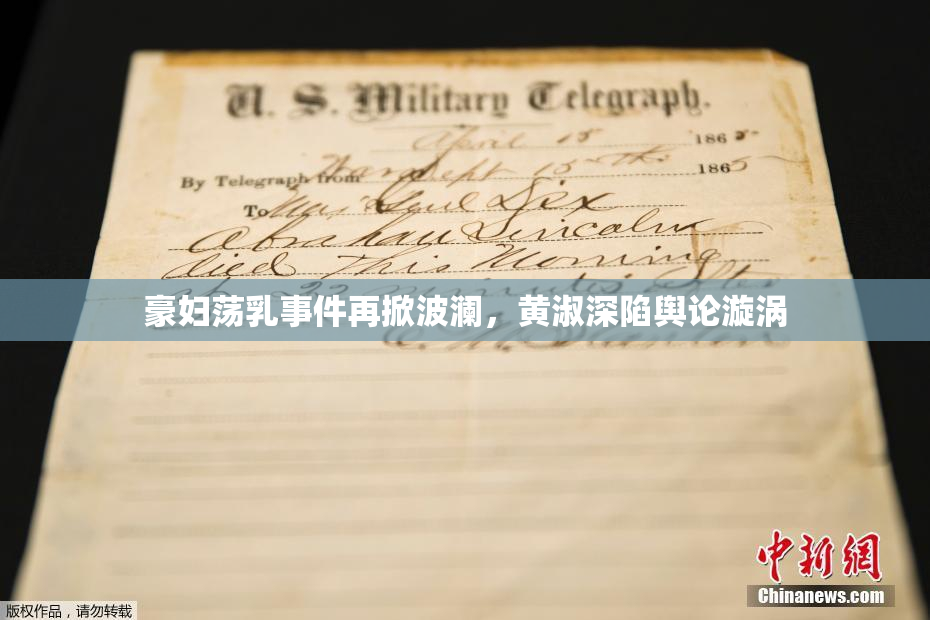 U. S. Military Telegraph.
April 15 1865
By Telegraph from War Dept 15th 1865
To Maj Genl Dix
Abraham Lincoln
died This Morning
at 22 minutes after
豪妇荡乳事件再掀波澜，黄淑深陷舆论漩涡
E. M. Stanton
中新网
Chinanews.com
版权作品，请勿转载